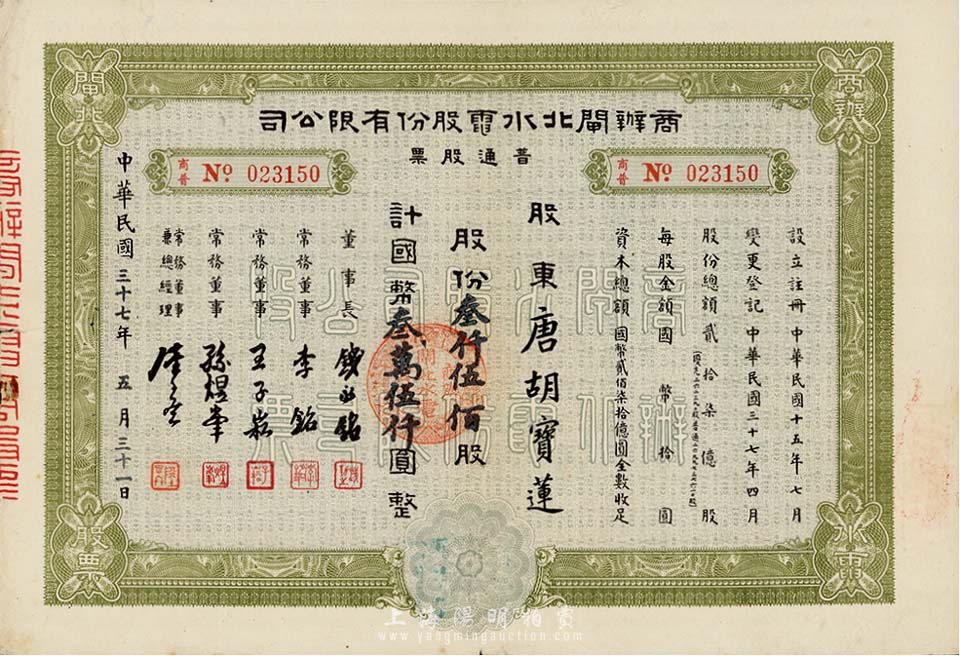 商辦閘北水電股份有限公司
普通股票
商普 No 023150
商普 No 023150
設立註冊 中華民國十五年七月
變更登記 中華民國三十七年四月
股份總額貳拾柒億股
每股金額國幣拾圓
資本總額 國幣貳佰柒拾億圓全數收足
股東唐胡寶蓮
股份叁仟伍佰股
計國幣叁萬伍仟圓整
董事長
常務董事 李銘
常務董事 王子崧
常務董事 孫煜峯
常務董事兼總經理
中華民國三十七年五月三十一日
商辦
閘北
水電
股票
上海陽明拍賣
www.yangmingauction.com